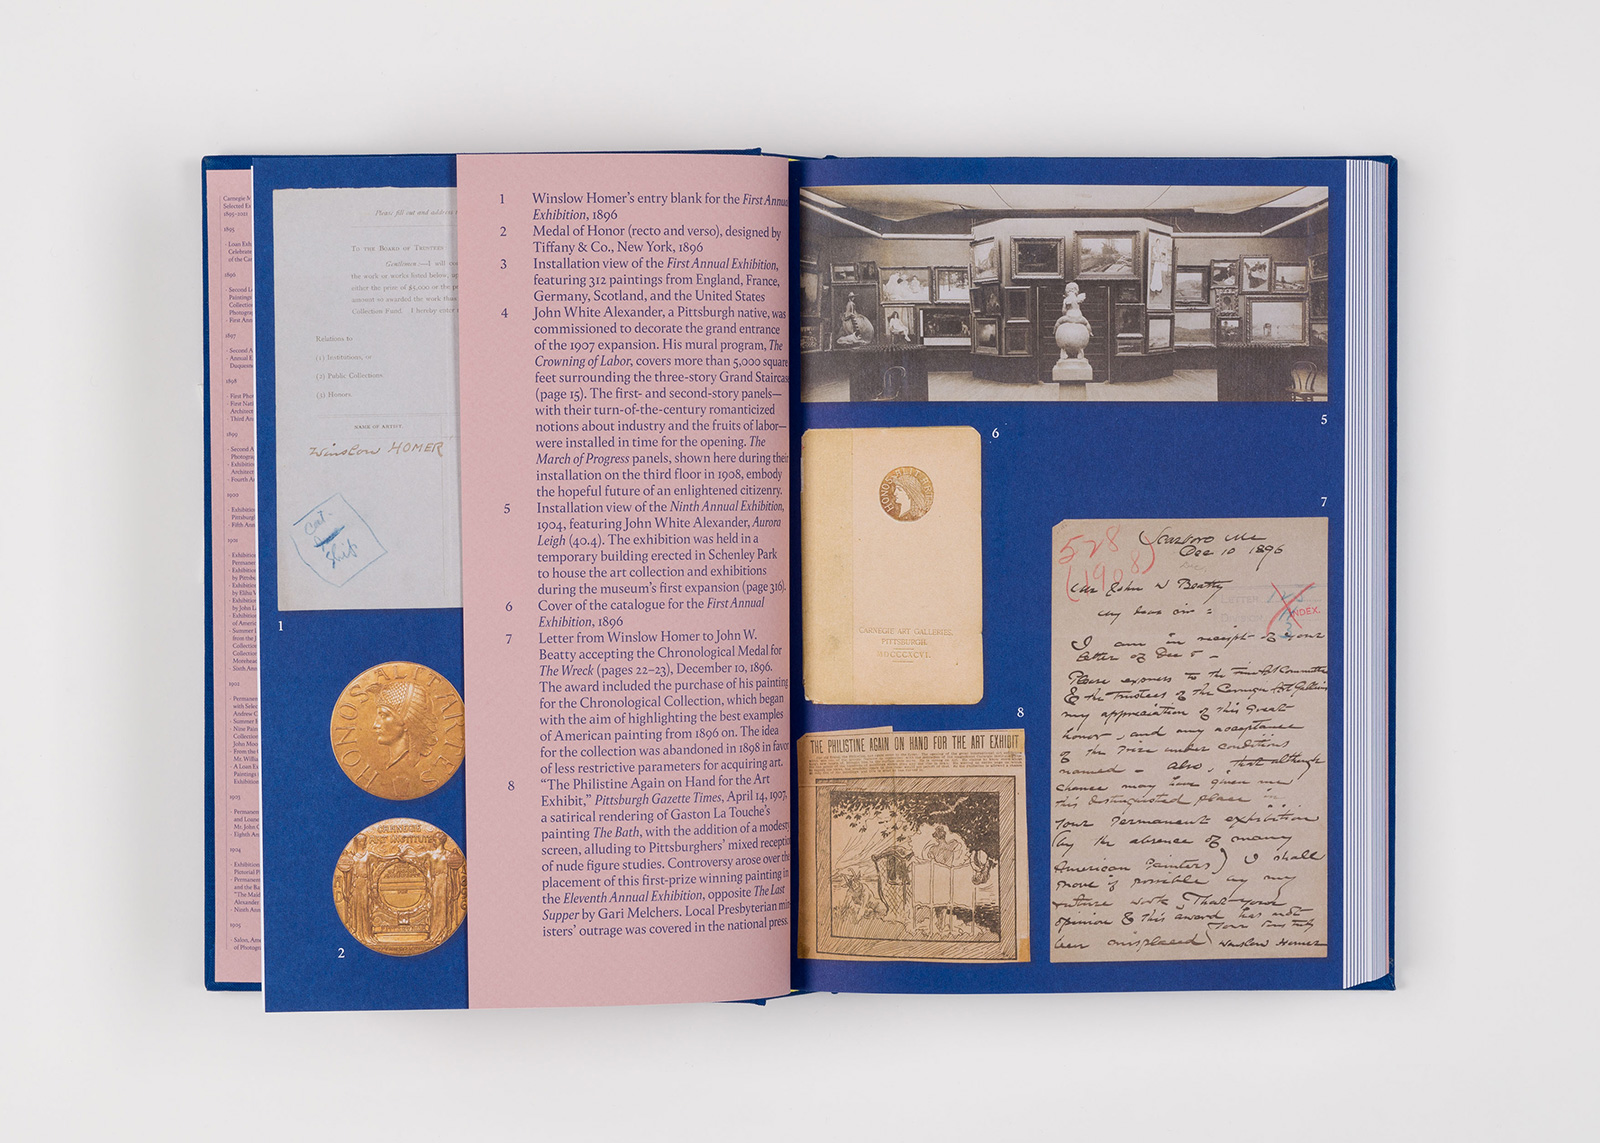 Carnegie M
Selected Ex
1895–2021
1895
· Loan Exh
Celebratin
of the Car
1896
· Second L
Paintings
Collection
Photograp
· First Ann
1897
· Second A
· Annual E
Duquesne
1898
· First Pho
· First Nat
Architect
· Third An
1899
· Second A
Photogra
· Exhibition
Architect
· Fourth A
1900
· Exhibition
Pittsburgh
· Fifth Ann
1901
1902
1903
1904
1905
Please fill out and address
TO THE BOARD OF TRUSTEES
Gentlemen:—I will
the work or works listed below,
either the prize of $5,000 or the
amount so awarded the work
Collection Fund. I hereby enter
Relations to
(1) Institutions, or
(2) Public Collections.
(3) Honors.
NAME OF ARTIST.
Winslow HOMER
Cat-
Ship
1
HONOS·ALIT·ARTES
CARNEGIE
ART INSTITUTE
2
1 Winslow Homer’s entry blank for the First Annua
Exhibition, 1896
2 Medal of Honor (recto and verso), designed by
Tiffany & Co., New York, 1896
3 Installation view of the First Annual Exhibition,
featuring 312 paintings from England, France,
Germany, Scotland, and the United States
4 John White Alexander, a Pittsburgh native, was
commissioned to decorate the grand entrance
of the 1907 expansion. His mural program, The
Crowning of Labor, covers more than 5,000 square
feet surrounding the three-story Grand Staircase
(page 15). The first- and second-story panels—
with their turn-of-the-century romanticized
notions about industry and the fruits of labor—
were installed in time for the opening. The
March of Progress panels, shown here during their
installation on the third floor in 1908, embody
the hopeful future of an enlightened citizenry.
5 Installation view of the Ninth Annual Exhibition,
1904, featuring John White Alexander, Aurora
Leigh (40.4). The exhibition was held in a
temporary building erected in Schenley Park
to house the art collection and exhibitions
during the museum’s first expansion (page 316).
6 Cover of the catalogue for the First Annual
Exhibition, 1896
7 Letter from Winslow Homer to John W.
Beatty accepting the Chronological Medal for
The Wreck (pages 22–23), December 10, 1896.
The award included the purchase of his painting
for the Chronological Collection, which began
with the aim of highlighting the best examples
of American painting from 1896 on. The idea
for the collection was abandoned in 1898 in favor
of less restrictive parameters for acquiring art.
8 “The Philistine Again on Hand for the Art
Exhibit,” Pittsburgh Gazette Times, April 14, 1907,
a satirical rendering of Gaston La Touche’s
painting The Bath, with the addition of a modest
screen, alluding to Pittsburghers’ mixed reception
of nude figure studies. Controversy arose over the
placement of this first-prize winning painting in
the Eleventh Annual Exhibition, opposite The Last
Supper by Gari Melchers. Local Presbyterian min
isters’ outrage was covered in the national press.
5
6
HONOS·ALIT·ARTES
CARNEGIE ART GALLERIES
PITTSBURGH.
MDCCCXCVI.
8
THE PHILISTINE AGAIN ON HAND FOR THE ART EXHIBIT
7
528
(1908)
Scarboro Me
Dec 10 1896
Mr John W Beatty
My dear sir:
LETTER
INDEX.
I am in receipt of your
letter of Dec 5 –
Please express to the Fine Art Committee
& the trustees of the Carnegie Art Galleries
my appreciation of this Great
honor, and my acceptance
of the Prize under conditions
named – also, that although
chance may have given me
this distinguished place in
your Permanent exhibition
(by the absence of many
American Painters) I shall
prove if possible by my
future work that your
opinion & this award has not
been misplaced
Yours truly
Winslow Homer